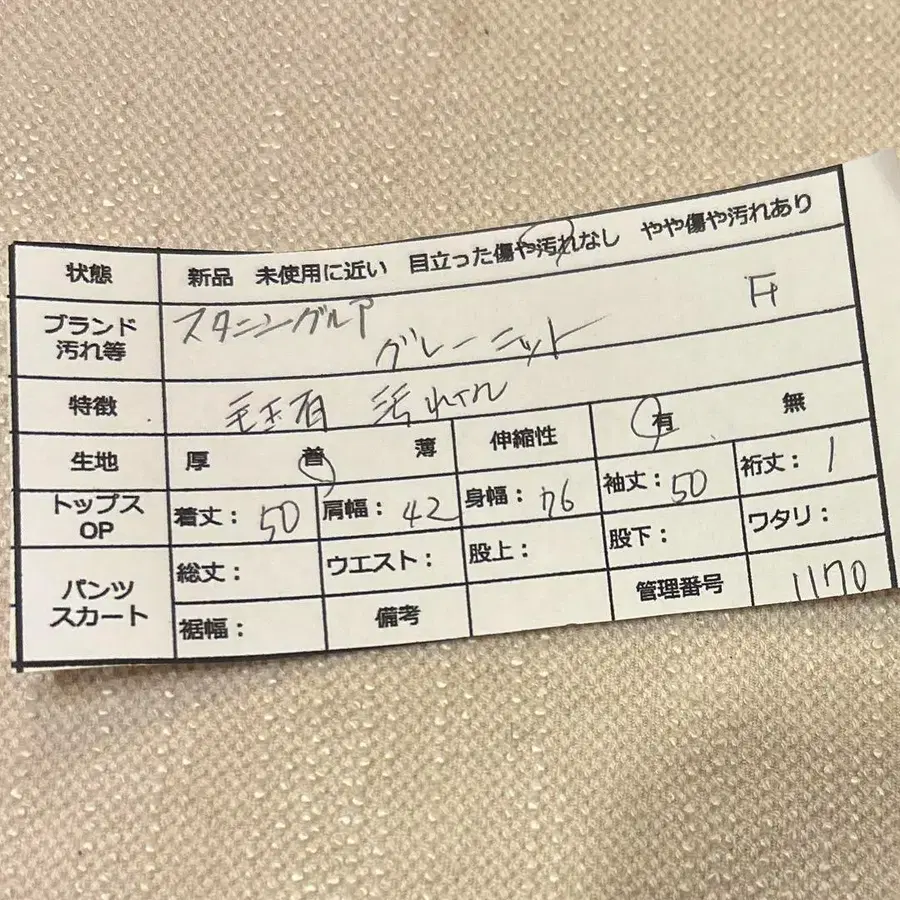 状態 新品 未使用に近い 目立った傷や汚れなし やや傷や汚れあり
ブランド 汚れ等 スタニングルア F
グレーニット
特徴 毛玉有 汚れ
生地 厚 普 薄 伸縮性 有 無
トップス OP 着丈: 50 肩幅: 42 身幅: 46 袖丈: 50 裄丈: /
パンツ スカート 総丈: ウエスト: 股上: 股下: ワタリ:
裾幅: 備考 管理番号 1170